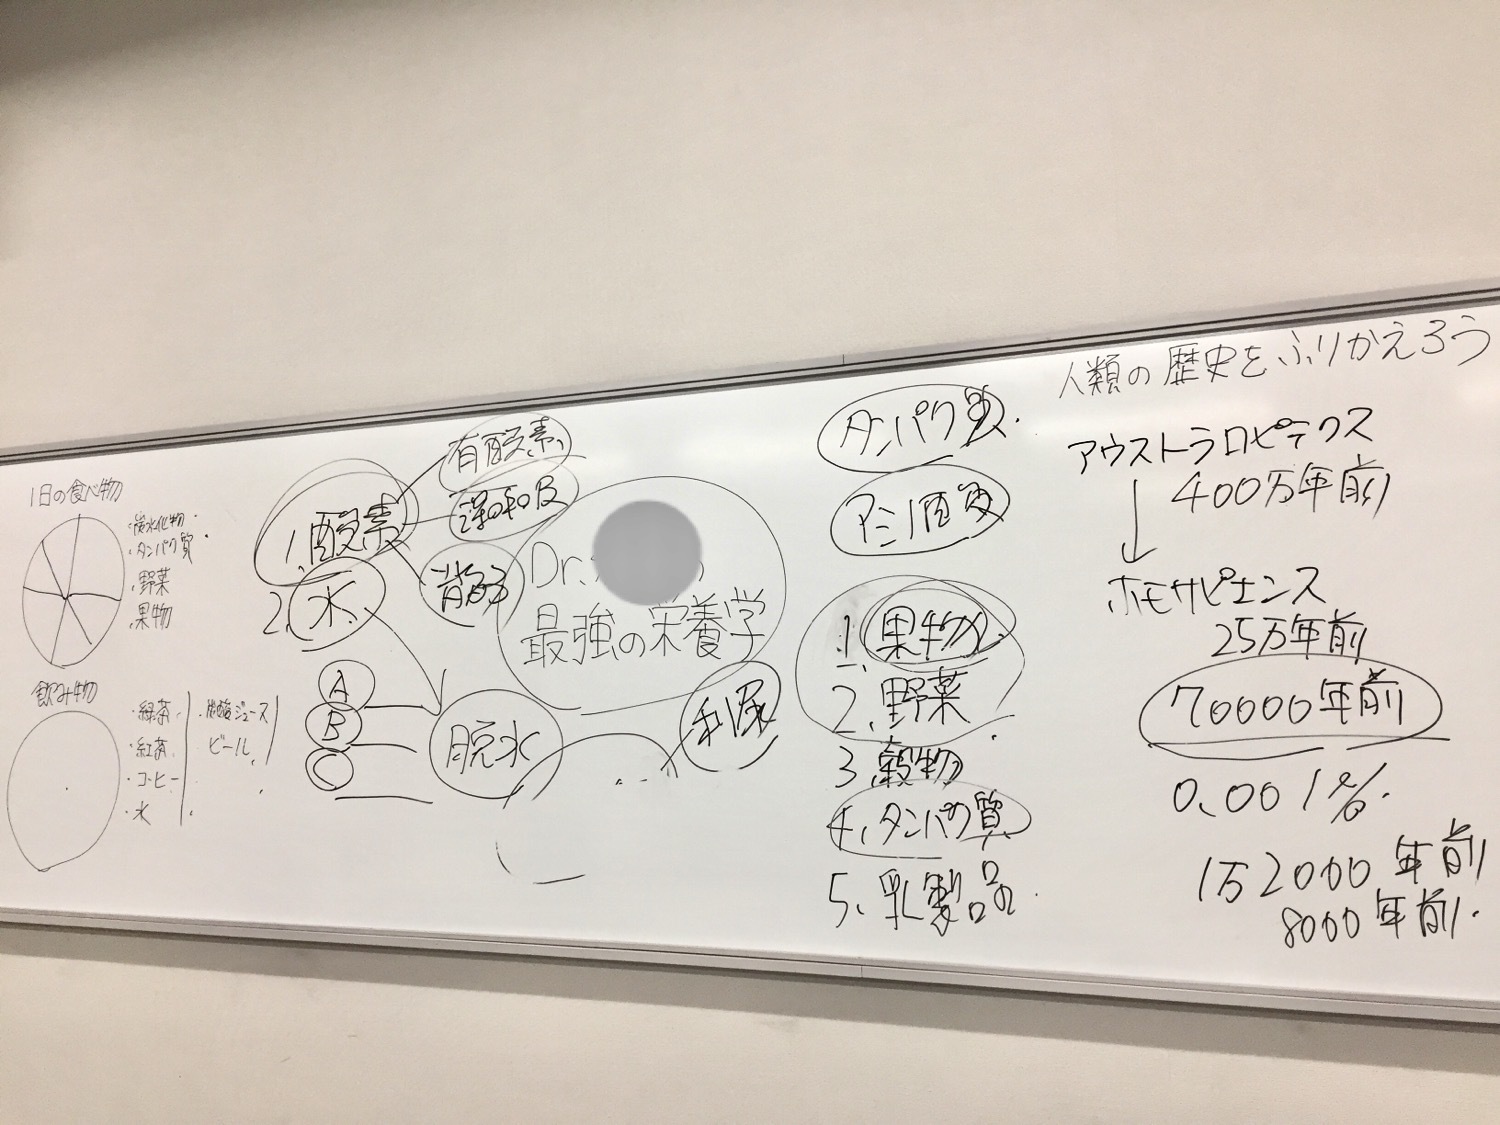 1日の食べ物
・炭水化物
・タンパク質
・野菜
・果物
飲み物
・緑茶
・紅茶
・コーヒー
・水
・炭酸ジュース
ビール
1. 酸素
有酸素
2. 水
A
B
C
脱水
利尿
Dr.
最強の栄養学
タンパク質
アミノ酸
1. 果物
2. 野菜
3. 穀物
4. タンパク質
5. 乳製品
人類の歴史をふりかえろう
アウストラロピテクス
400万年前
ホモサピエンス
25万年前
70000年前
0.001%
1万2000年前
8000年前